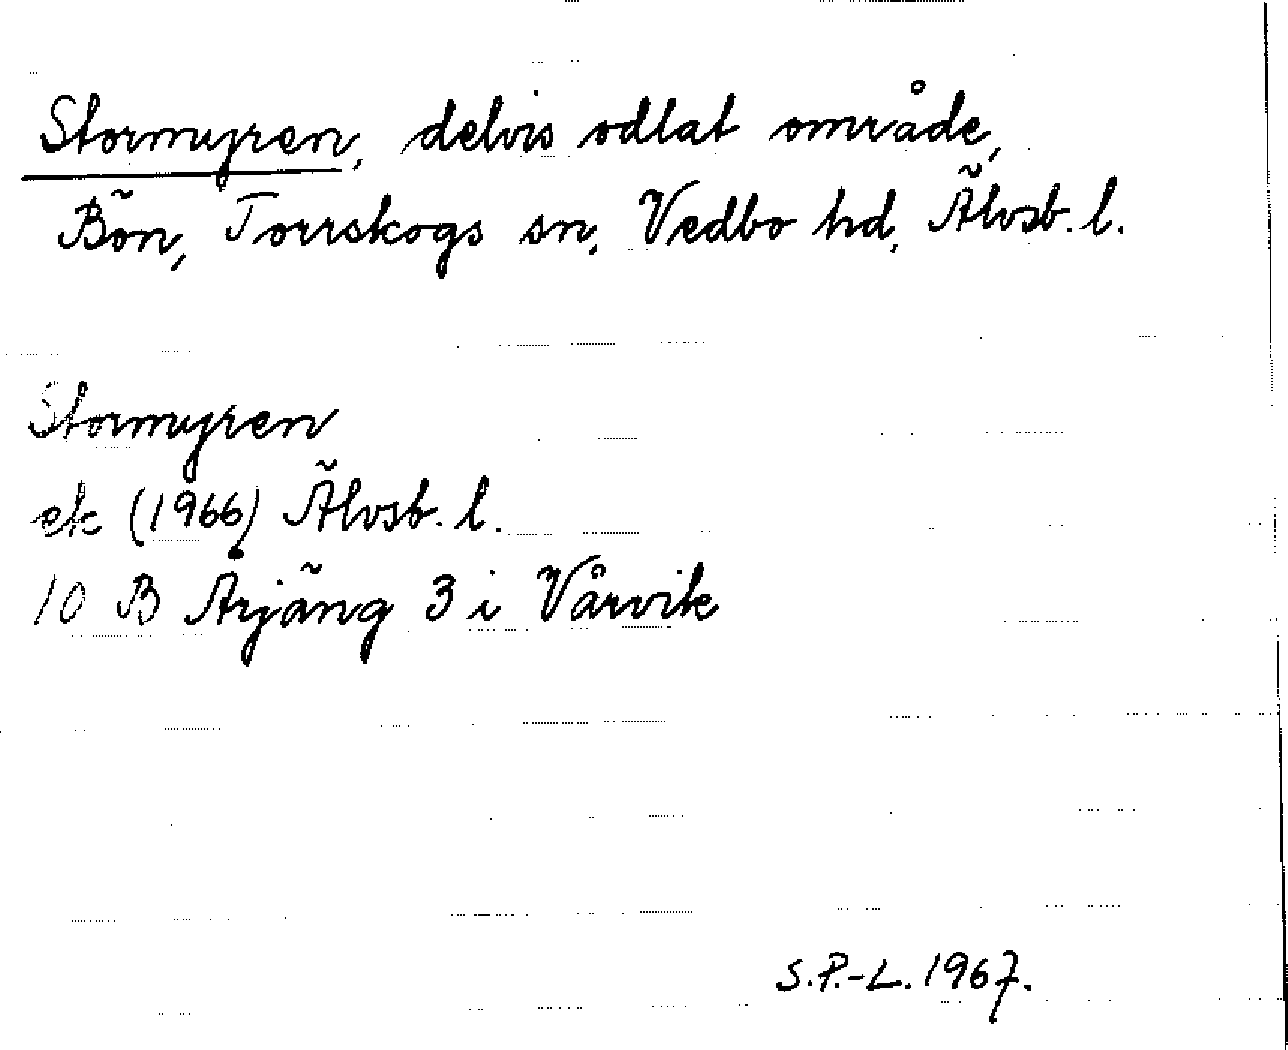 Stormyren, delvis odlat område,
Bön, Torrskogs sn, Vedbo hd, Älvsb. l.
Stormyren
ek (1966) Älvsb. l.
10 B Årjäng 3 i Vårvik
S.P.-L. 1967.